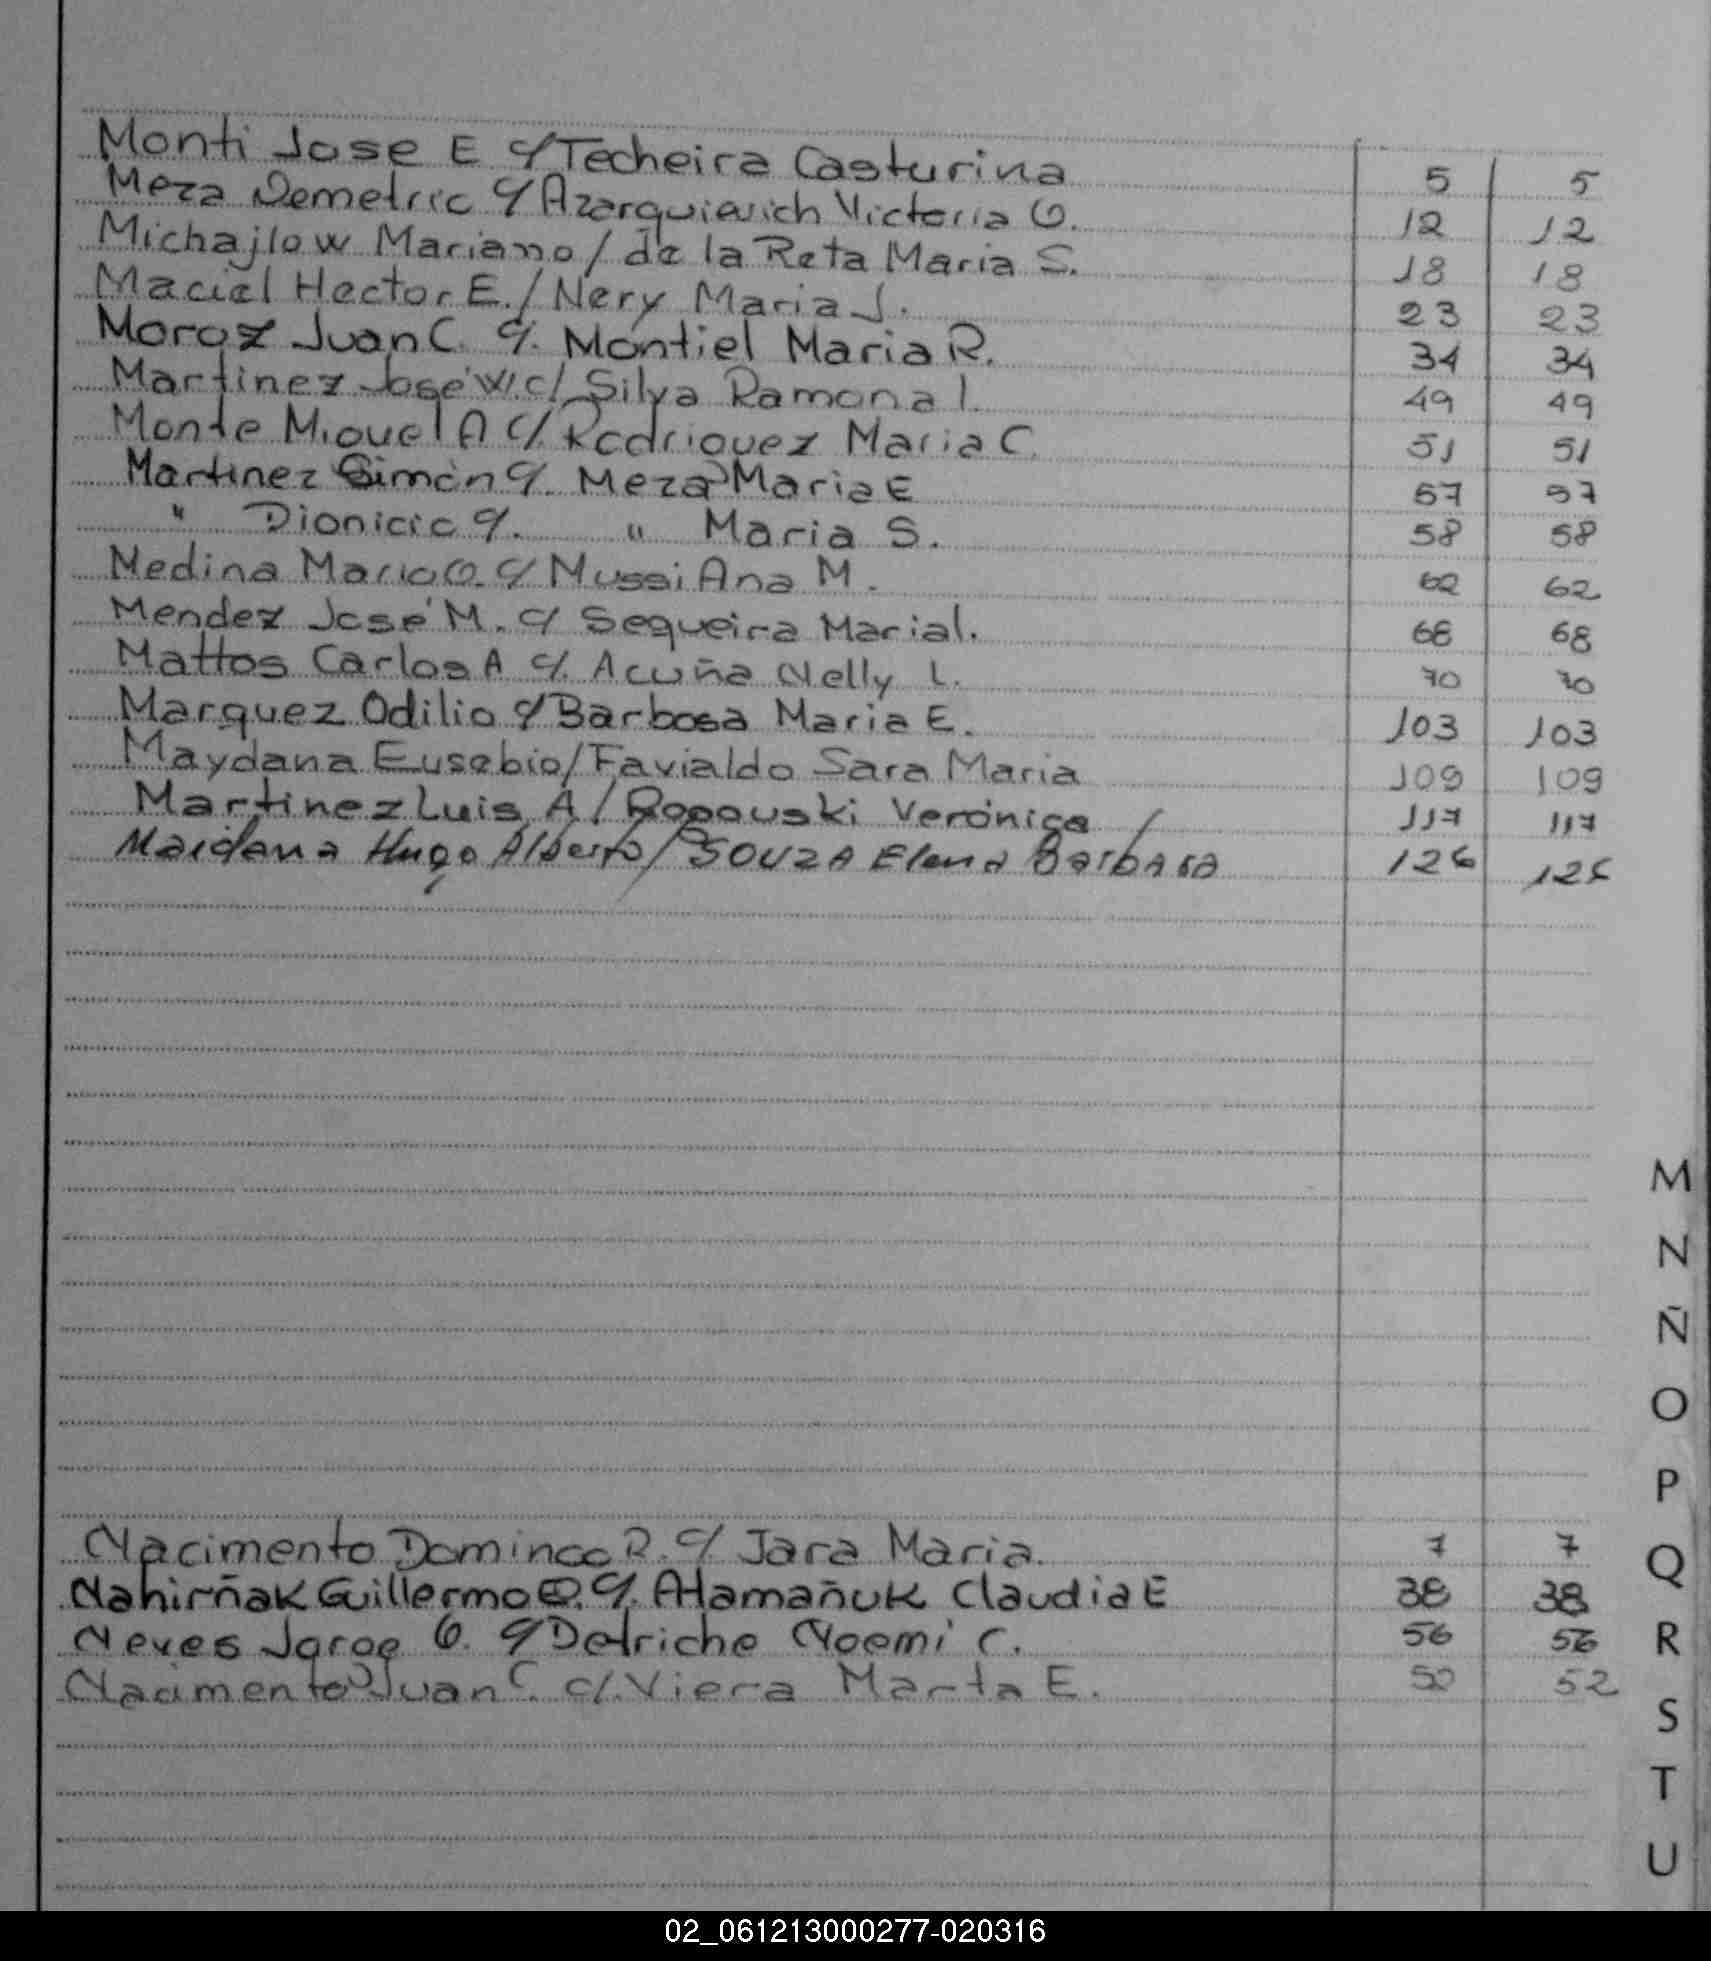 Monti Jose E c/ Techeira Casturina 5 5
Meza Demetrio c/ Azarquievich Victoria O. 12 12
Michajlow Mariano / de la Reta Maria S. 18 18
Maciel Hector E. / Nery Maria J. 23 23
Moroz Juan C. c/. Montiel Maria R. 34 34
Martinez José W. c/ Silva Ramona I. 49 49
Monte Miguel A c/. Rodriguez Maria C. 51 51
Martinez Simón c/. Meza Maria E 57 57
" Dionicio c/. " Maria S. 58 58
Medina Mario O. c/ Mussi Ana M. 62 62
Mendez José M. c/ Sequeira Maria I. 68 68
Mattos Carlos A c/. Acuña Nelly L. 70 70
Marquez Odilio c/ Barbosa Maria E. 103 103
Maydana Eusebio / Favialdo Sara Maria 109 109
Martinez Luis A / Rogouski Verónica 117 117
Maidana Hugo Alberto / SOUZA Elena Barbara 126 126
M
N
Ñ
O
P
Nacimento Domingo R. c/ Jara Maria. 7 7
Q
Nahirñak Guillermo O. c/. Atamañuk Claudia E 38 38
Neves Jorge O. c/ Detriche Noemi C. 56 56
R
Nacimento Juan C. c/. Viera Marta E. 52 52
S
T
U
02_061213000277-020316